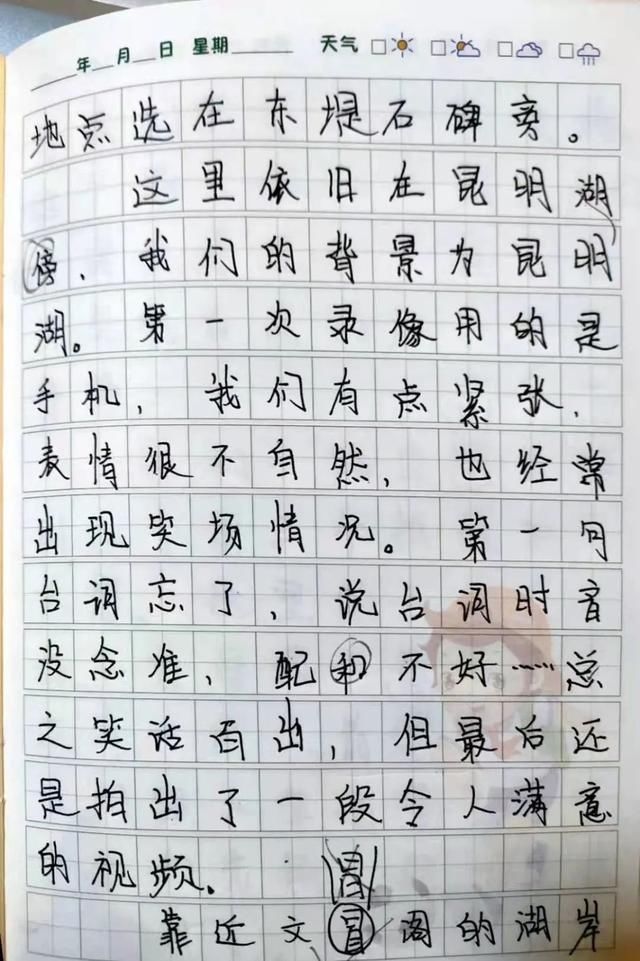 年 月 日 星期 天气
地点选在东堤石碑旁。
这里依旧在昆明湖
傍，我们的背景为昆明
湖。第一次录像用的是
手机，我们有点紧张，
表情很不自然，也经常
出现笑场情况。第一句
台词忘了，说台词时音
没念准，配和不好……总
之笑话百出，但最后还
是拍出了一段令人满意
的视频。
靠近文冒阁的湖岸